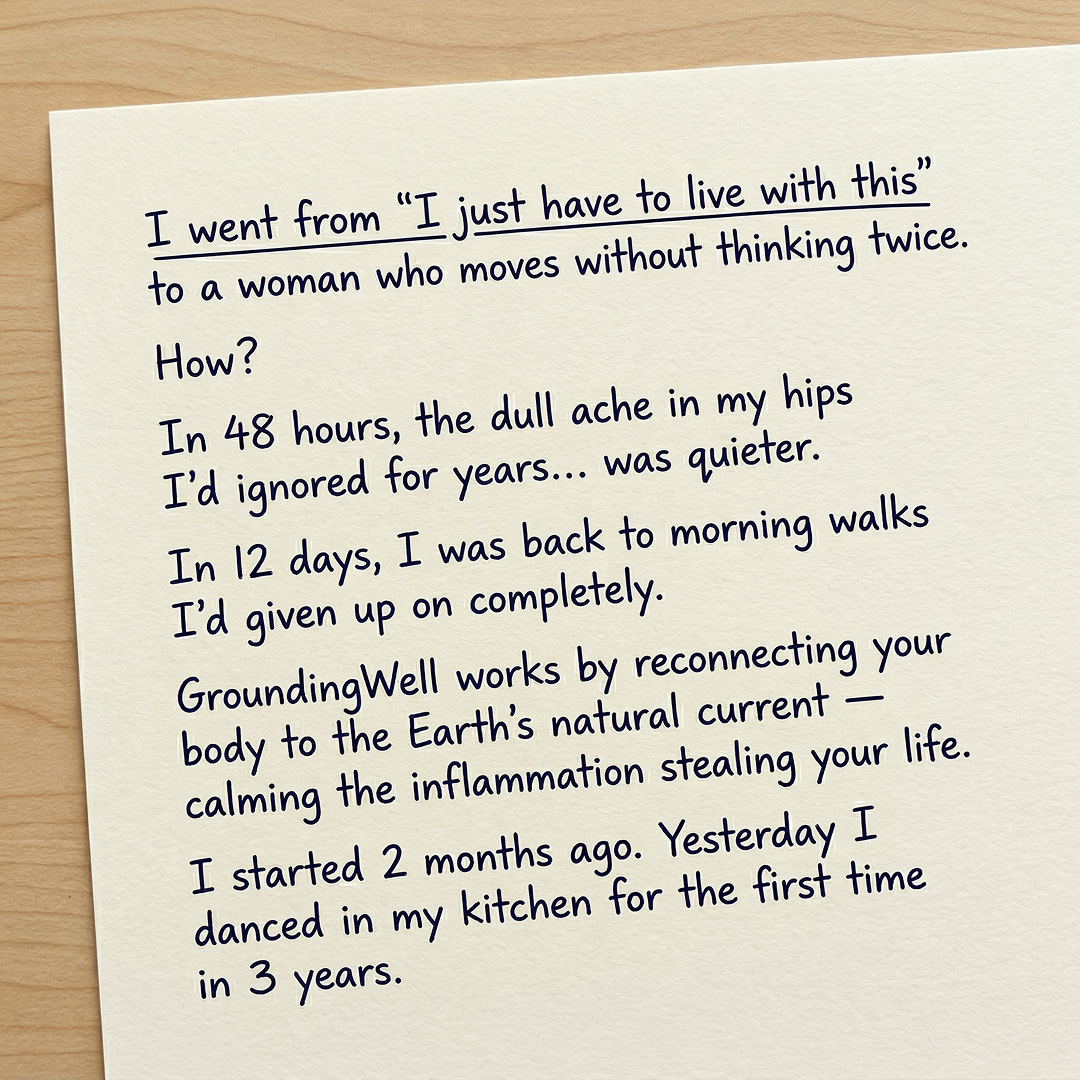 I went from “I just have to live with this”
to a woman who moves without thinking twice.
How?
In 48 hours, the dull ache in my hips
I’d ignored for years... was quieter.
In 12 days, I was back to morning walks
I’d given up on completely.
GroundingWell works by reconnecting your
body to the Earth’s natural current —
calming the inflammation stealing your life.
I started 2 months ago. Yesterday I
danced in my kitchen for the first time
in 3 years.